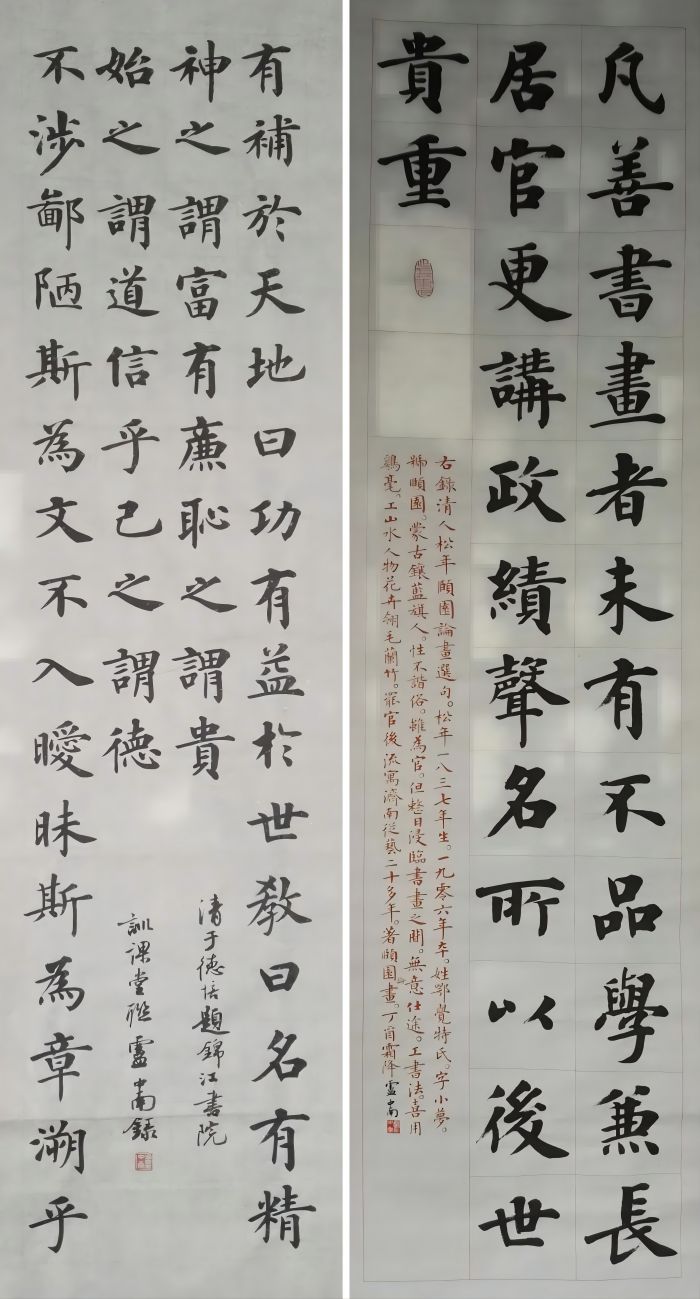 凡善書畫者未有不品學兼長
居官更講政績聲名所以後世
貴重
右錄清人松年頤園論畫選句。松年一八三七年生。一九零六年卒。姓鄂覺特氏。字小夢。
號頤園。蒙古鑲藍旗人。性不諧俗。雖為官。但整日浸臨書畫之間。無意仕途。工書法。喜用
鷄毫。工山水人物花卉翎毛蘭竹。罷官後流寓濟南從藝二十多年。著頤園畫。丁酉霜降盧中南
有補於天地曰功有益於世教曰名有精
神之謂富有廉恥之謂貴
清于德培題錦江書院
不涉鄙陋斯為文不入曖昧斯為章溯乎
始之謂道信乎己之謂德
訓課堂聯盧中南錄